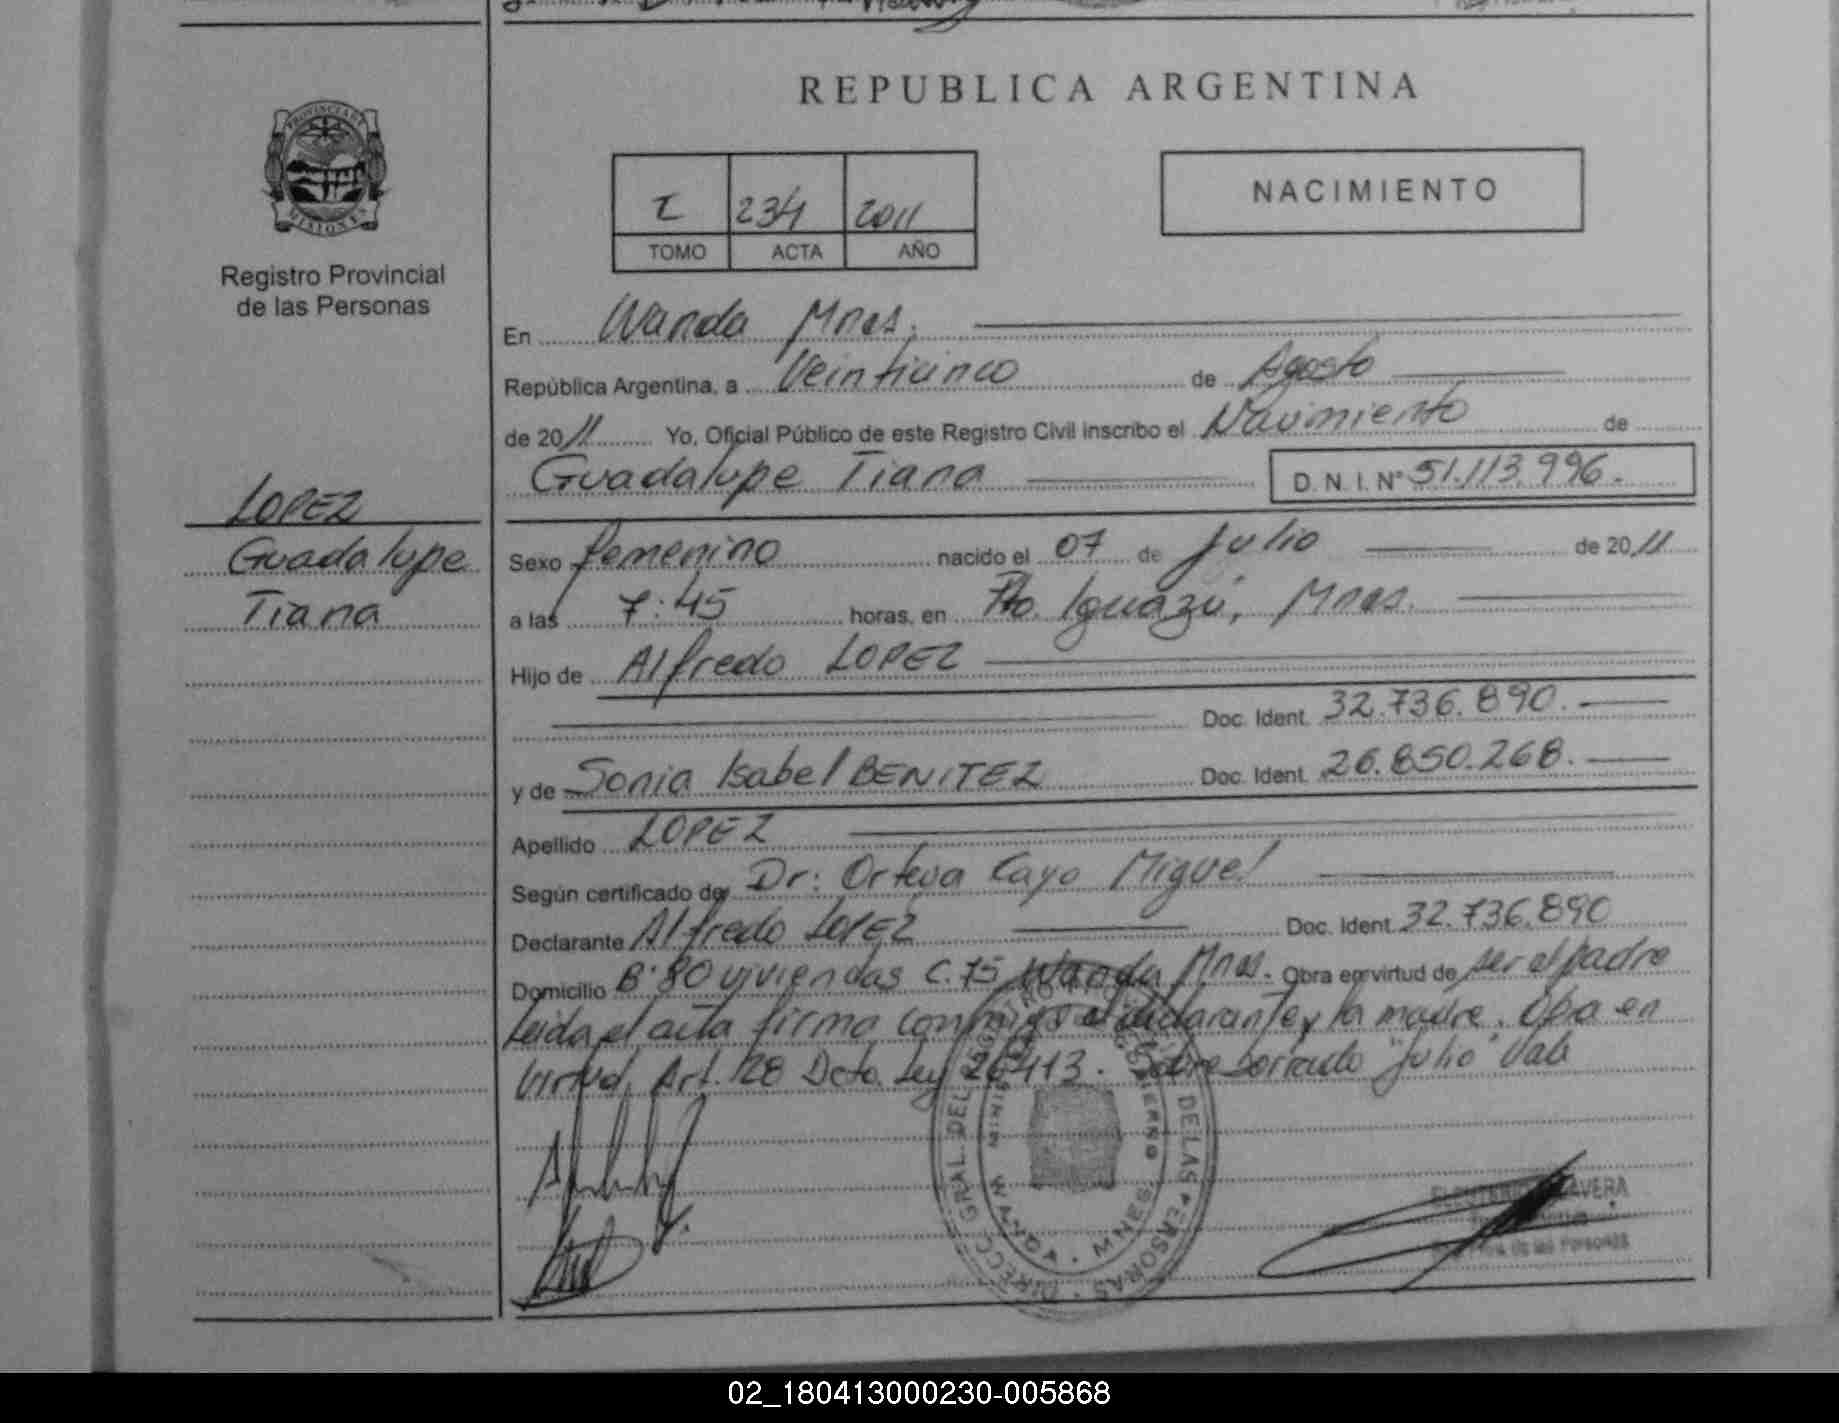 REPUBLICA ARGENTINA
PROVINCIA DE
MISIONES
Registro Provincial
de las Personas
I 234 2011
TOMO ACTA AÑO
NACIMIENTO
En Wanda Mnes.
República Argentina, a Veinticinco de Agosto
de 2011 Yo, Oficial Público de este Registro Civil inscribo el Nacimiento de
Guadalupe Tiana D.N.I. N° 51.113.996.
LOPEZ
Guadalupe
Tiana
Sexo femenino nacido el 07 de Julio de 2011
a las 7:45 horas, en Pto. Iguazú, Mnes.
Hijo de Alfredo LOPEZ
Doc. Ident. 32.736.890.
y de Sonia Isabel BENITEZ Doc. Ident. 26.850.268.
Apellido LOPEZ
Según certificado de Dr: Cayo Miguel
Declarante Alfredo LOPEZ Doc. Ident. 32.736.890
Domicilio B° 80 viviendas C.75 Wanda Mnes. Obra en virtud de ser el padre
Leida el acta firma conmigo el declarante y la madre. Obra en
Virtud Art. 28 Dcto. Ley 26413. Sobre borrado "Julio" Vale
DIRECC. GRAL. DEL REGISTRO DE LAS PERSONAS
MINIS GOBIERNO
WANDA - MNES
de las Personas
02_180413000230-005868